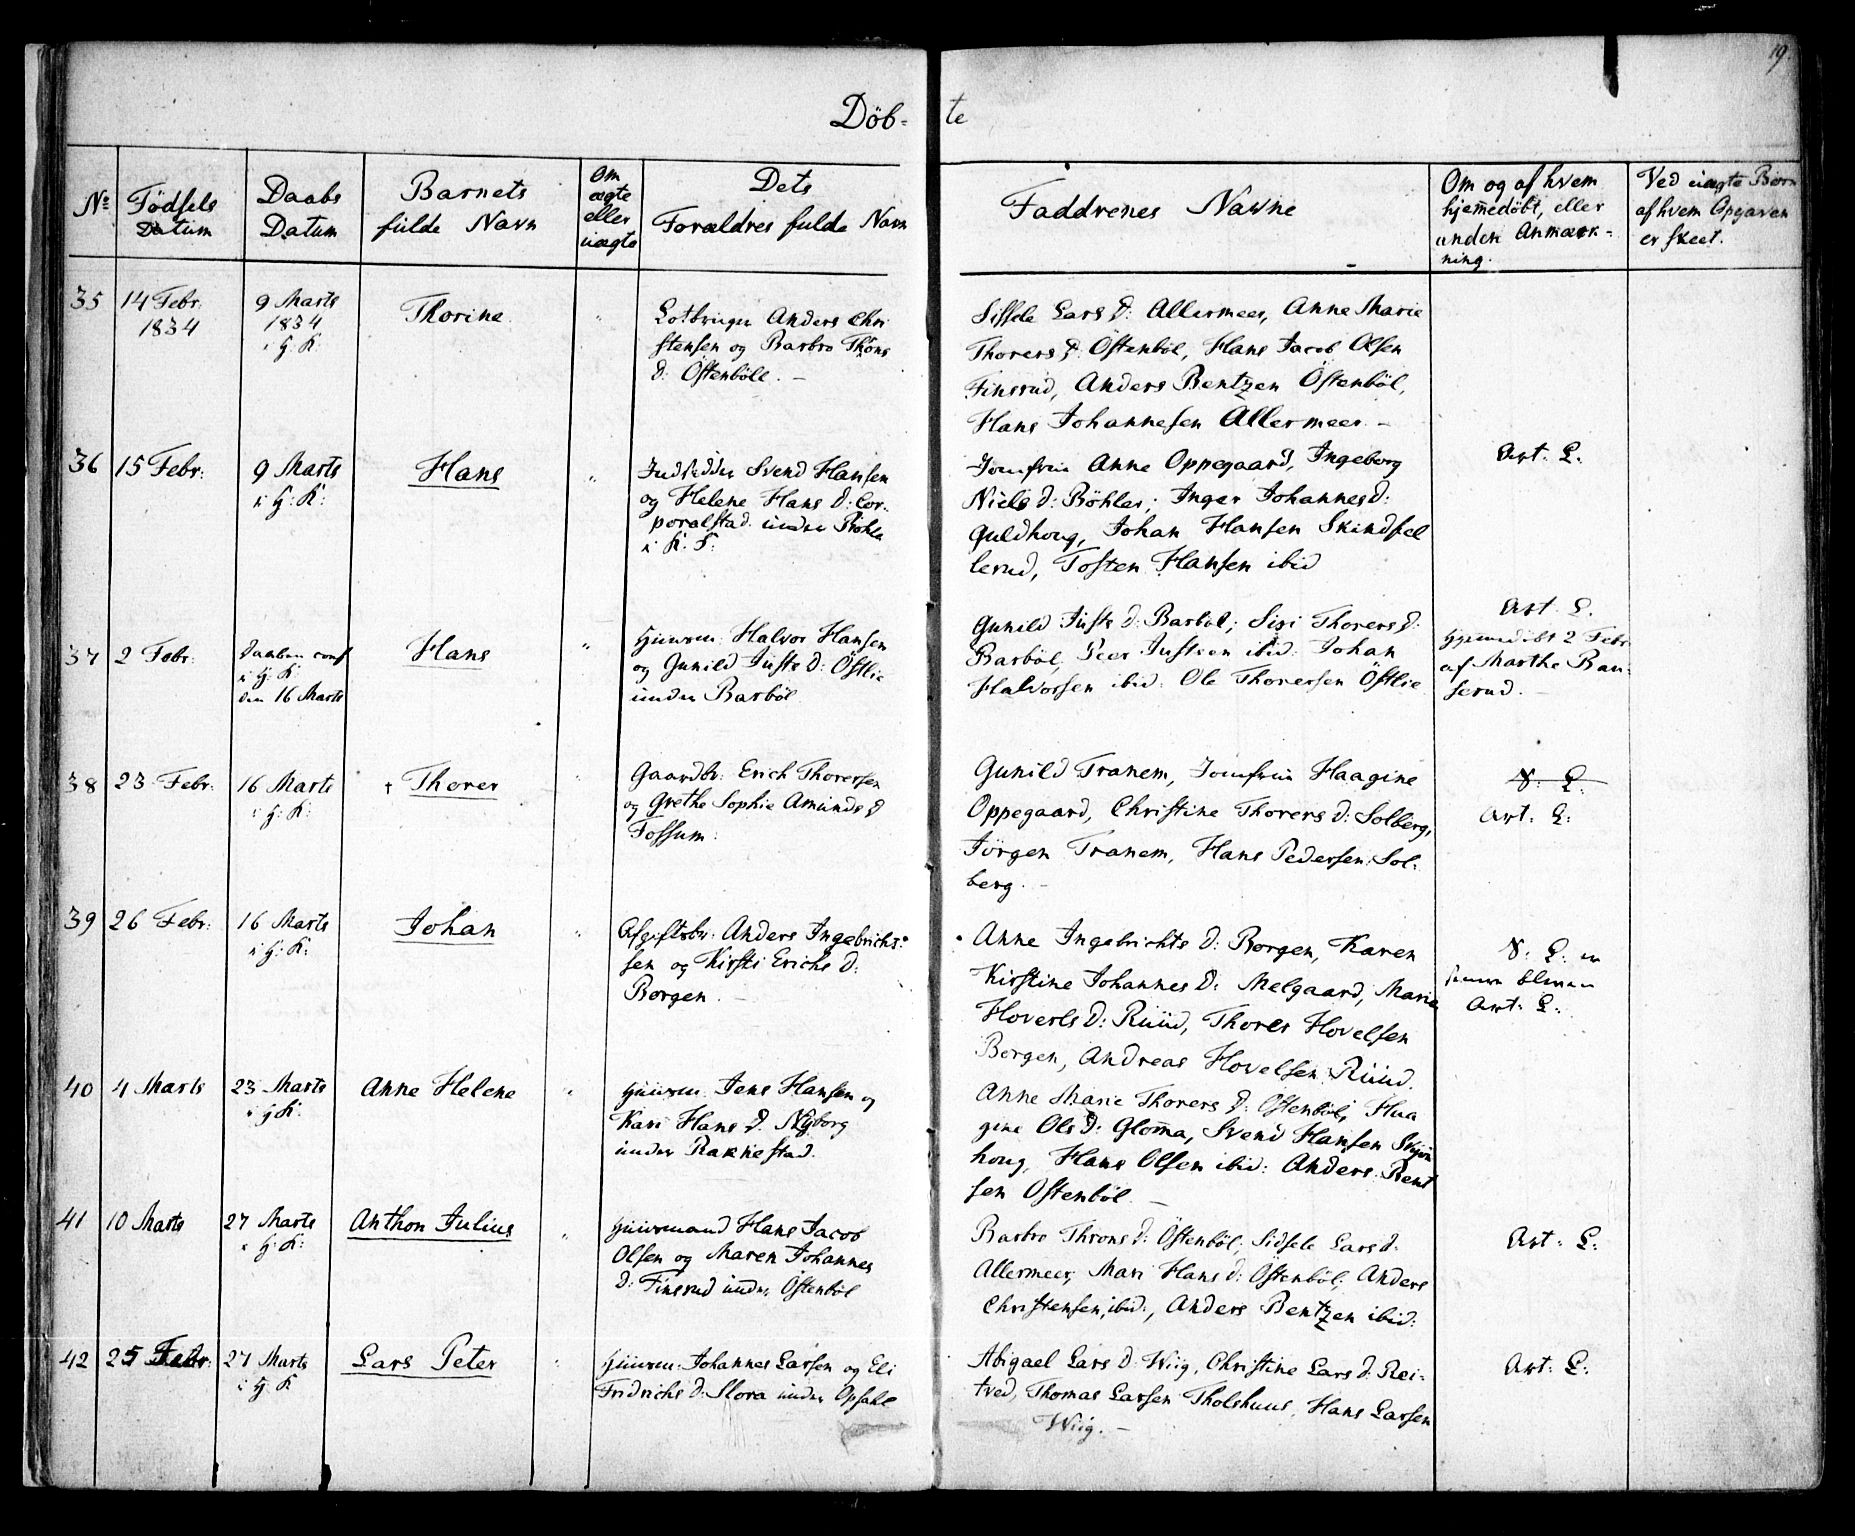 19.
Döb- te
No
Födsels
Datum
Daabs
Datum
Barnets
fulde Navn
Om
ægte
eller
uægte
Dets
Forældres fulde Navn
Faddrenes Navne
Om og af hvem
hjemmedöbt, eller
anden Anmærk-
ning.
Ved uægte Børn
af hvem Opgaven
er skeet.
35
14 Febr:
1834
9 Marts
1834
i H: K:
Thorine
"
Anders Chri
stensen og Barbro Thons
D: Östenböll. -
Sissele Lars D: Allermeer, Anne Marie
Thorers D: Östenböl, Hans Jacob Olsen
Finsrud, Anders Bentzen Östenböl,
Hans Johannesen Allermeer -
36
15 Febr:
9 Marts
i H: K:
Hans
"
Indsidder Svend Hansen
og Helene Hans D: Cor-
poralstad under Böhle
i K. S:
Jomfru Anne Oppegaard, Ingeborg
Niels D: Böhler, Inger Johannes D:
Guldhoug, Johan Hansen Skindfel
lerud, Tosten Hansen ibid
Art: L.
37
2 Febr:
Daaben conf
i H: K:
den 16 Marts
Hans
"
Huusm: Halvor Hansen
og Gunild Justs D: Östlie
under Barböl
Gunild Justs D: Barböl; Sisi Thorers D:
Barböl, Peer Justsen ibid: Johan
Halvorsen ibid: Ole Thorersen Östlie
Art. L.
Hjemmedöbt 2 Febr
af Marthe Bau-
serud. -
38
23 Febr:
16 Marts
i H: K:
† Thorer
"
Gaardbr: Erich Thorersen
og Grethe Sophie Amunds D
Fossum:
Gunild Tranem, Jomfru Haagine
Oppegaard, Christine Thorers D: Solberg,
Jörgen Tranem, Hans Pedersen Sol-
berg. -
V. L:
Art: L:
39
26 Febr:
16 Marts
i H: K:
Johan
"
Afgiftsbr: Anders Ingebrichs-
sen og Kirsti Erichs D:
Borgen. -
Anne Ingebrichts D: Borgen, Karen
Kirstine Johannes D: Melgaard, Marie
Hovels D: Ruud, Thorer Hovelsen
Borgen, Andreas Hovelsen Ruud.
V: L: er
senere bleven
Art: L:
40
4 Marts
23 Marts
i H: K:
Anne Helene
"
Huusm: Jens Hansen og
Kari Hans D. Nyborg
under Rakkestad.
Anne Marie Thorers D: Östenböl, Haa
gine Ols D: Glomma, Svend Hansen Skjön
houg, Hans Olsen ibid: Anders Bent
sen Östenböl. -
41
10 Marts
27 Marts
i H: K:
Anthon Julius
"
Huusmand Hans Jacob
Olsen og Maren Johannes
D: Finsrud under Östenböl
Barbro Throns D: Östenböl, Sidsele Lars D:
Allermeer, Mari Hans D: Östenböl, Anders
Christensen, ibid:, Anders Bentzen ibid:
Art: L:
42
25 Febr:
27 Marts
i H: K
Lars Peter
"
Huusm: Johannes Larsen og Eli
Fridrichs D: Slora under Opsahl
Abigael Lars D: Wiig, Christine Lars D: Rei-
tved, Thomas Larsen Tholshuus, Hans Larsen
Wiig. -
Art: L: